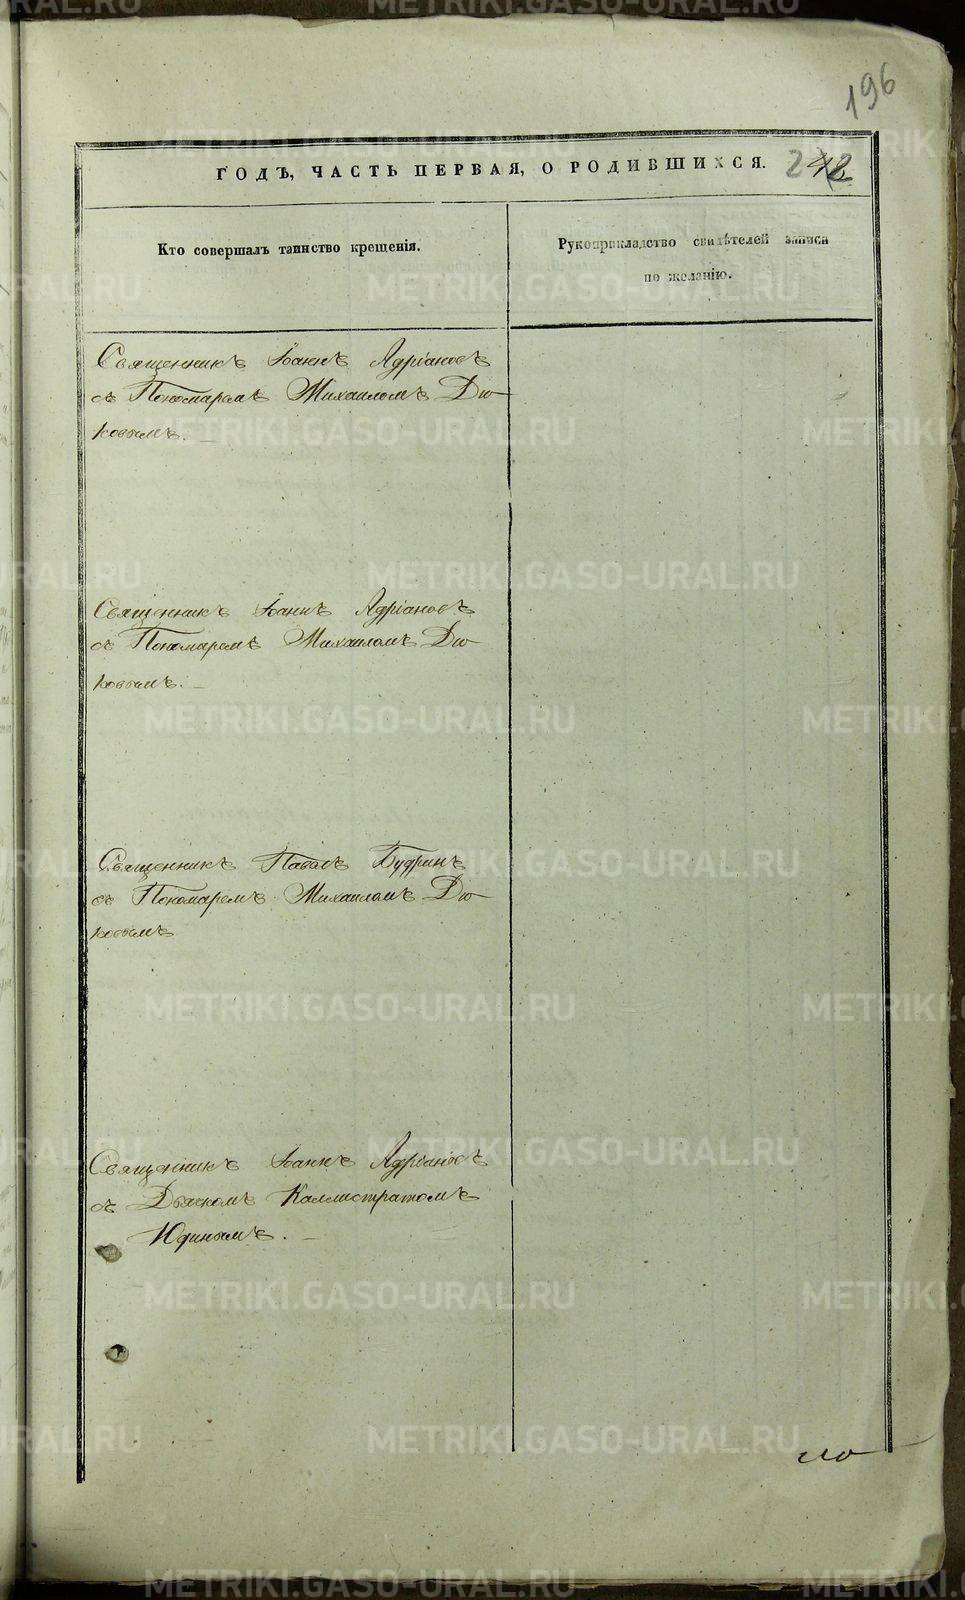 196
ГОДЪ, ЧАСТЬ ПЕРВАЯ, О РОДИВШИХСЯ.
Кто совершалъ таинство крещенія.
Рукоприкладство свидѣтелей записи
по желанію.
Священникъ Іоаннъ Адріановъ
съ Пономаремъ Михаиломъ Дю-
ковымъ. –
Священникъ Іоаннъ Адріановъ
съ Пономаремъ Михаиломъ Дю-
ковымъ. –
Священникъ Павелъ Будринъ
съ Пономаремъ Михаиломъ Дю-
ковымъ
Священникъ Іоаннъ Адріановъ
съ Дьячкомъ Каллистратомъ
Юдинымъ. –
METRIKI.GASO-URAL.RU